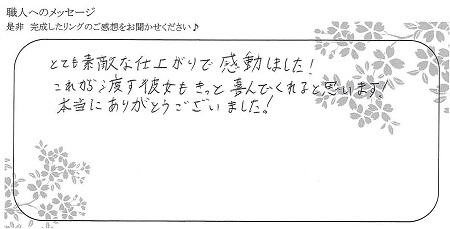 職人へのメッセージ
是非 完成したリングのご感想をお聞かせください♪
とても素敵な仕上がりで感動しました!
これから渡す彼女もきっと喜んでくれると思います!
本当にありがとうございました!